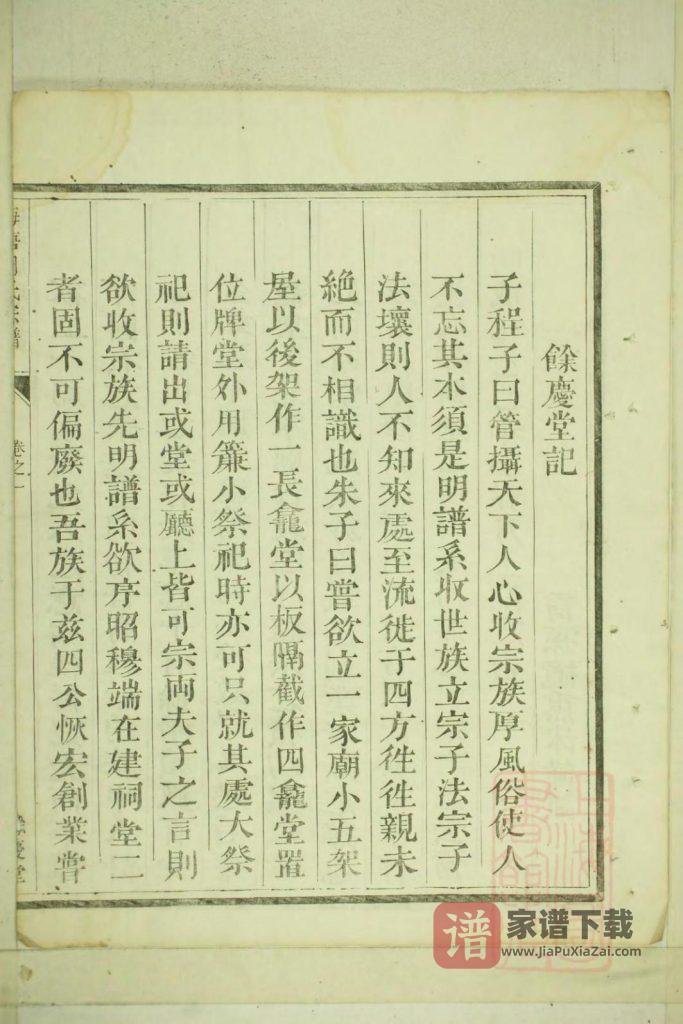 餘慶堂記
子程子曰管攝天下人心收宗族厚風俗使人
不忘其本須是明譜系收世族立宗子法宗子
法壞則人不知來處至流徙于四方徃徃親未
絶而不相識也朱子曰嘗欲立一家廟小五架
屋以後架作一長龕堂以板隔截作四龕堂置
位牌堂外用簾小祭祀時亦可只就其處大祭
祀則請出或堂或廳上皆可宗両夫子之言則
欲收宗族先明譜系欲序昭穆端在建祠堂二
者固不可偏廢也吾族于兹四公恢宏創業嘗
氏宗譜
卷之一
餘慶堂
谱
家谱下载
www.JiaPuXiaZai.com